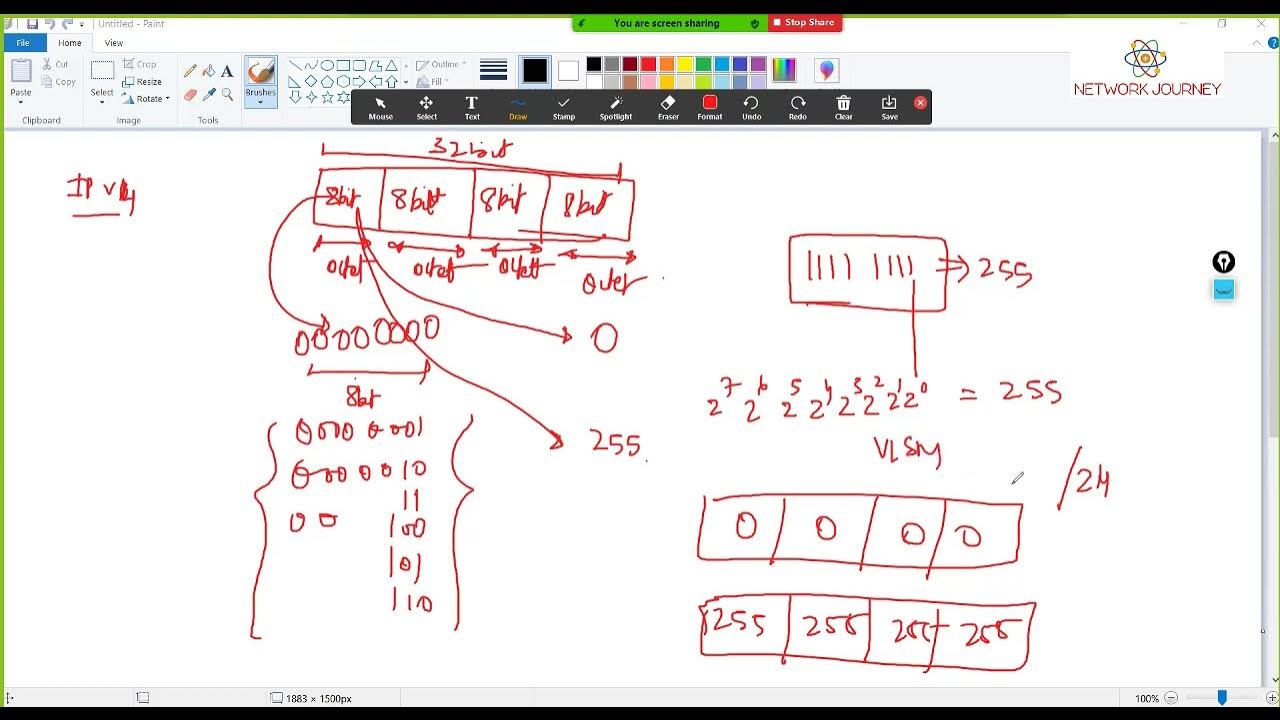 Untitled - Paint
You are screen sharing
Stop Share
File
Home
View
Paste
Cut
Copy
Clipboard
Select
Crop
Resize
Rotate
Image
Tools
Brushes
Outline
Fill
Mouse
Select
Text
Draw
Stamp
Spotlight
Eraser
Format
Undo
Redo
Clear
Save
NETWORK JOURNEY
32bit
IP v4
8bit 8bit 8bit 8bit
octet octet octet octet
1111 1111 → 255
0000 0000
8bit
0
2^7 2^6 2^5 2^4 2^3 2^2 2^1 2^0 = 255
0000 0001
255
VLSM
0000010
/24
11
00 100
0 0 0 0
101
110
255 255 255 255
1883 × 1500px
100%